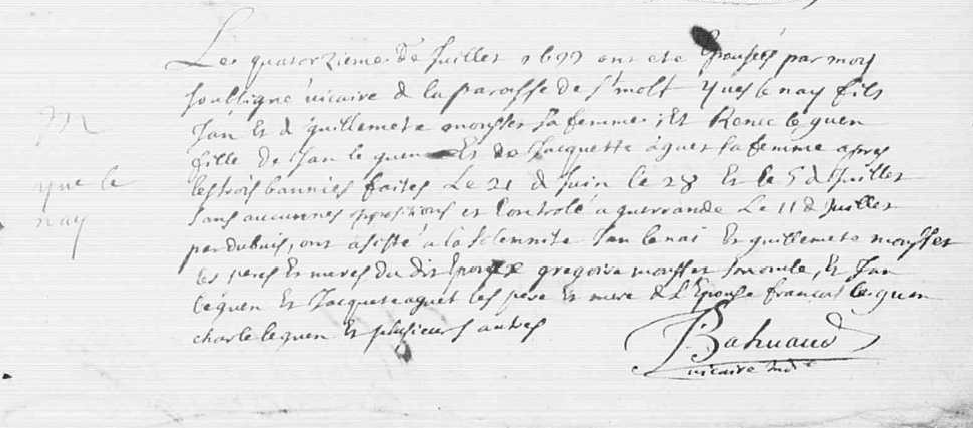 M
yue le
nay
Le quatorzieme de Juillet 1697 ont ete Epousés par moy
soussigné vicaire de la paroisse de St molf Yues le nay fils
Jan Et de guillemete mousser sa femme ; Et Renee le guen
fille de Jan le guen Et de Jacquette aguet sa femme apres
les trois bannies faites Le 21 de Juin le 28 Et le 5 de Juillet
sans aucunnes oppositions et Controlé a guerrande Le 11 de Juillet
par dubuis, ont asisté a la solemnite Jan lenai Et guillemete mousser
les peres Et meres du dit Epoux gregoire mousser son oncle, Et Jan
le guen Et Jacquete aguet les pere Et mere de L'Epouse francois le guen
charle le guen Et plusieurs autres
Bahuaud
vicaire